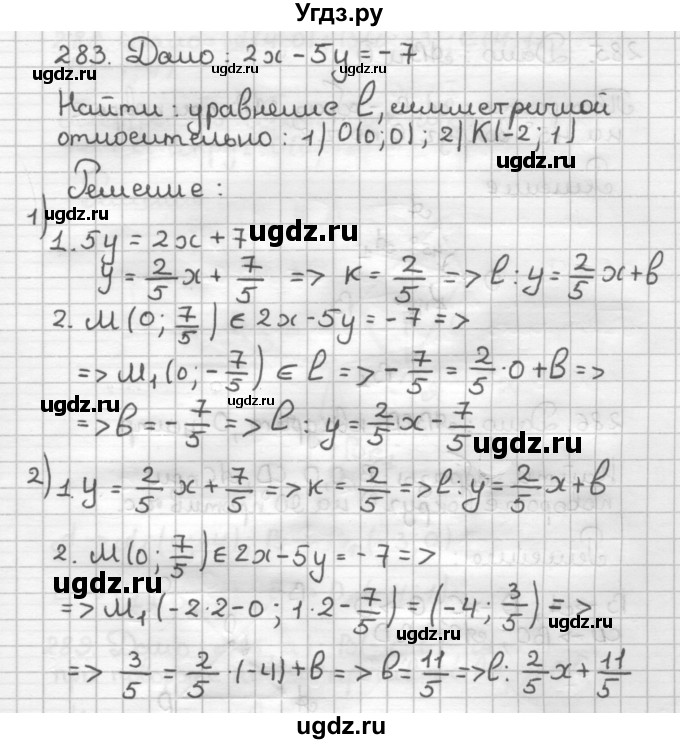 Угдз.ру
283. Дано: 2x - 5y = -7
ugdz.ru ugdz.ru
Найти: уравнение l, симметричной
относительно: 1) O(0;0); 2) K(-2; 1)
ugdz.ru
Решение:
ugdz.ru
1)
1. 5y = 2x + 7
ugdz.ru
y = 2/5 x + 7/5 => к = 2/5 => l: y = 2/5 x + b
2. M(0; 7/5) ∈ 2x - 5y = -7 =>
ugdz.ru
=> M₁(0; -7/5) ∈ l => -7/5 = 2/5 · 0 + b =>
ugdz.ru ugdz.ru
=> b = -7/5 => l: y = 2/5 x - 7/5
ugdz.ru
2) 1. y = 2/5 x + 7/5 => к = 2/5 => l: y = 2/5 x + b
ugdz.ru
2. M(0; 7/5) ∈ 2x - 5y = -7 =>
ugdz.ru
=> M₁(-2·2-0; 1·2-7/5) = (-4; 3/5) =>
ugdz.ru ugdz.ru
=> 3/5 = 2/5 · (-4) + b => b = 11/5 => l: 2/5 x + 11/5
ugdz.ru ugdz.ru
ugdz.ru